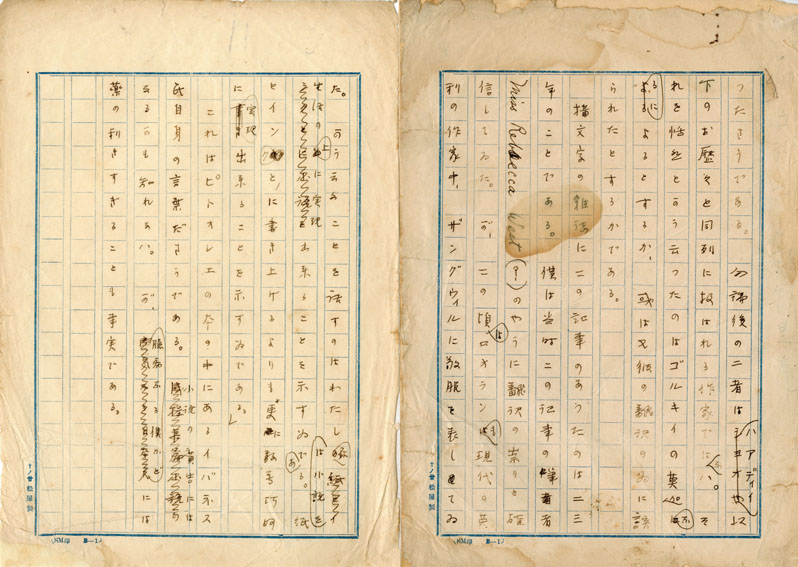 つたさうである。勿論後の二者はハアディイ
下のお歴々と同列に扱はれる作家ではない。そ
れを恬然とかう云つたのはゴルキイの
よるとするか、或は又彼の翻訳の為に誤
られたとするかである。
文家の雑誌にこの記事のあつたのは二三
年のことである。僕は当時この記事の筆者
Miss Rebecca West (?) のやうに翻訳の祟りと確
信してゐた。が、この頃はロオランも現代の英
利の作家中、ザングウィルに敬服を表してゐ
た。かう云ふことを話すのはわたしは小説を
生活の上に実現出来ることを示す為である。紙
とインクとに書き上げるよりも更に数等巧妙
に実現出来ることを示す為である。」
これはピトオレエの本の中にあるイバネス
氏自身の言葉ださうである。小説の広告には
云ふのも知れない。が、臆病なる僕などには
薬の利きすぎることも事実である。
松屋製
松屋製